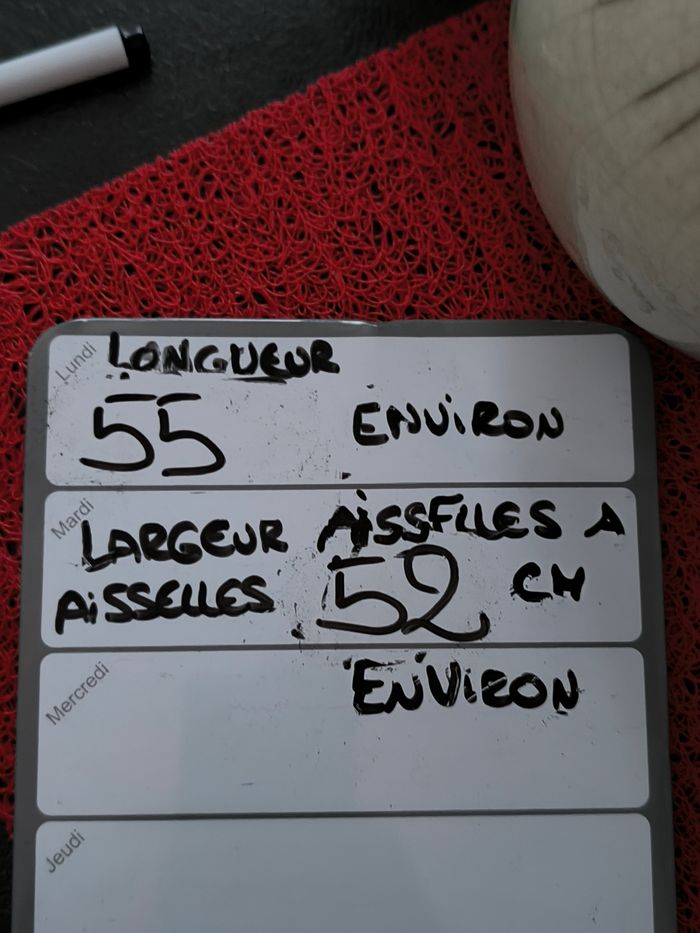 Lundi
LONGUEUR
55 ENVIRON
Mardi
LARGEUR AISSELLES A
AISSELLES 52 CM
Mercredi
ENVIRON
Jeudi